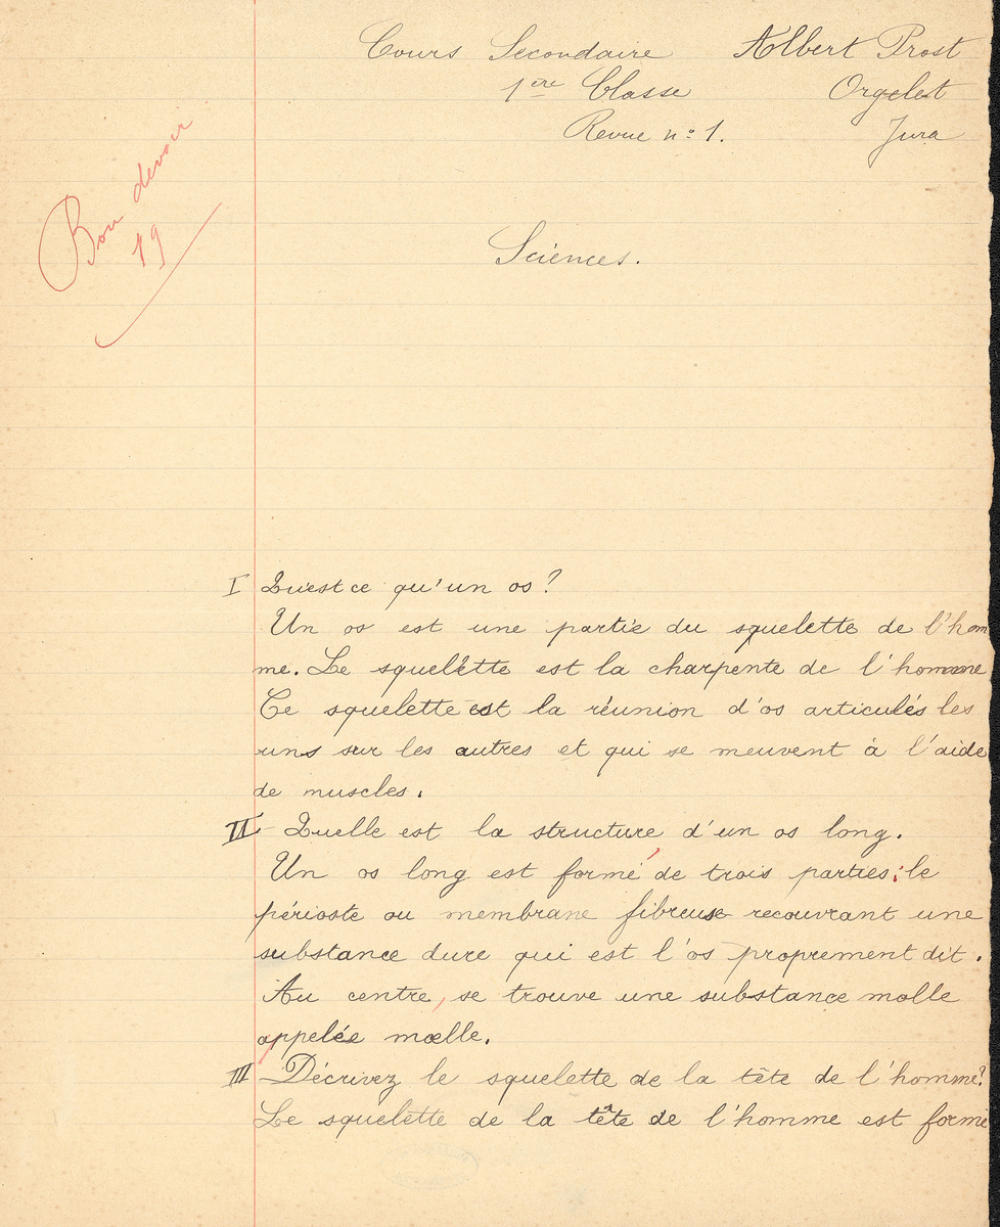 Cours Secondaire Albert Prost
1ère Classe Orgelet
Revue n° 1. Jura
Bon devoir
19
Sciences.
I Qu'est ce qu'un os?
Un os est une partie du squelette de l'hom
me. Le squelette est la charpente de l'homme
Ce squelette est la réunion d'os articulés les
uns sur les autres et qui se meuvent à l'aide
de muscles.
II Quelle est la structure d'un os long.
Un os long est formé de trois parties: le
périoste ou membrane fibreuse recouvrant une
substance dure qui est l'os proprement dit.
Au centre, se trouve une substance molle
appelée mœlle.
III Décrivez le squelette de la tête de l'homme?
Le squelette de la tête de l'homme est formé